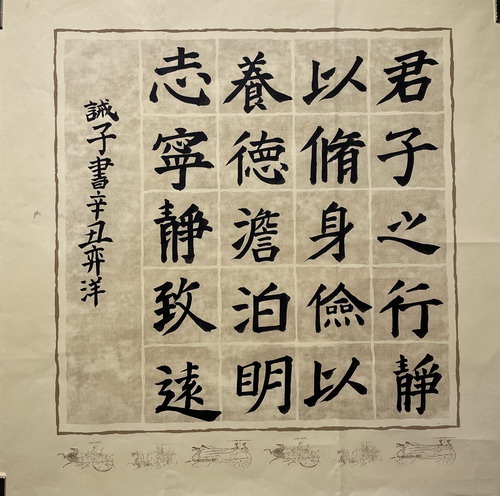 君子之行靜
以脩身儉以
養德澹泊明
志寧靜致遠
誡子書辛丑弈洋